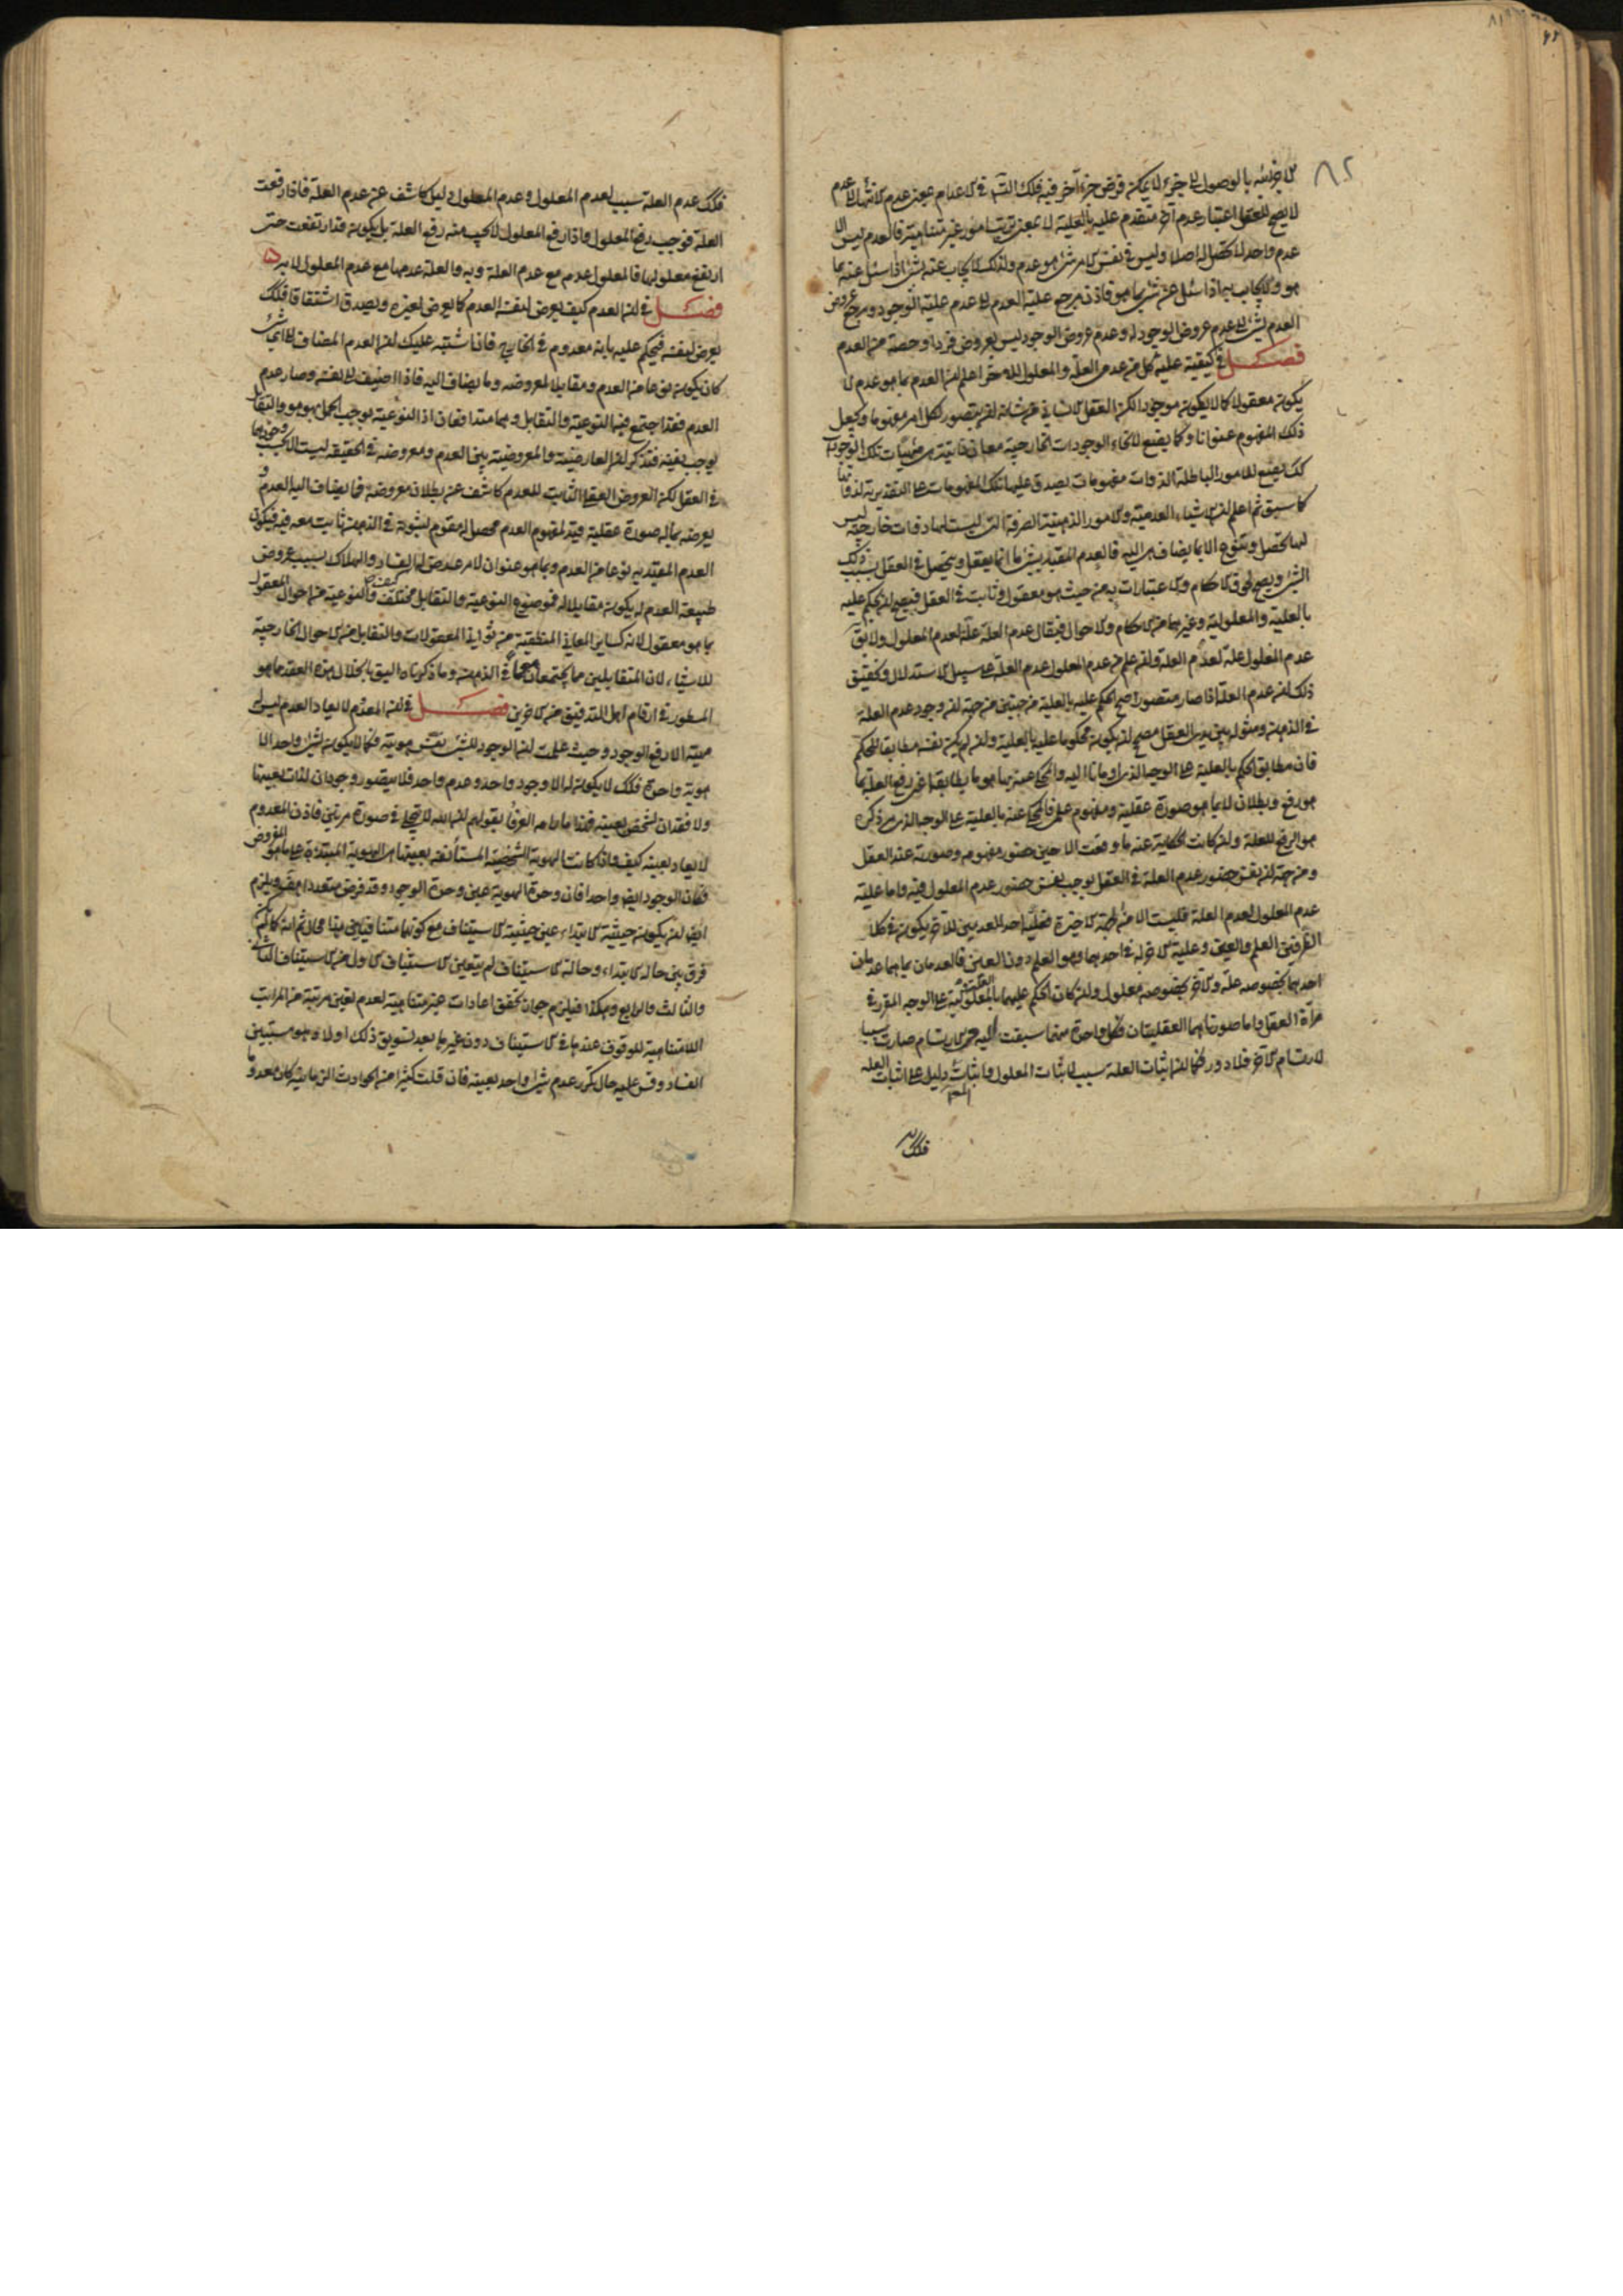 ٨٢
لا يصح للعقل اعتبار عدم آخر متقدم عليه بالعلية لا بمعنى ترتب امور غير متناهية فالعدم ليس الا
عدم واحد لا تحصل له اصلا وليس في نفس الامر شئ هو عدم ولذلك لا يجاب عنه بشئ اذا سئل عنه بما
هو ولا يجاب به اذا سئل عن شئ بما هو فاذن مرجع علية العدم الى عدم علية الوجود ومرجع عروض
العدم لشئ الى عدم عروض الوجود له وعدم عروض الوجود ليس بعروض فرد او حصة من العدم
فصل في كيفية علية كل من عدمى العلة والمعلول للآخر اعلم ان العدم بما هو عدم لا
يكون معقولا كما لا يكون موجودا لكن العقل الانسانى من شانه ان يتصور لكل امر مفهوما ويجعل
ذلك المفهوم عنوانا وكما يضع لانحاء الوجودات الخارجية معانى ذاتية هي ماهيات تلك الوجودات
كك يضع للامور الباطلة الذوات مفهومات يصدق عليها تلك المفهومات على التقدير لذواتها
كما سبق ثم اعلم ان الاشياء العدمية والامور الذهنية الصرفة التى ليست لها ذوات خارجية ليس
لها تحصل وتنوع الا بما يضاف هى اليه فالعدم المقيد بشئ ما انما يعقل ويتحصل في العقل بسبب ذلك
الشئ ويصح لحوق الاحكام والاعتبارات به من حيث هو معقول وثابت في العقل فيصح ان يحكم عليه
بالعلية والمعلولية وغيرهما من الاحكام والاحوال فيقال عدم العلة علة لعدم المعلول ولا يق
عدم المعلول علة لعدم العلة وان علم من عدم المعلول عدم العلة على سبيل الاستدلال وتحقيق
ذلك ان عدم العلة اذا صار متصورا صح الحكم عليه بالعلية من جهتين من جهة ان وجود عدم العلة
في الذهن ومثوله بين يدى العقل مصحح لان يكون محكوما عليه بالعلية وان لم يكن نفسه مطابقا للحكم
فان مطابق الحكم بالعلية على الوجه الذى اومأنا اليه والمحكى عنه بها هو ما يطابقه اعنى رفع العلة بما
هو رفع وبطلان لا بما هو صورة عقلية ومفهوم علمى فالمحكى عنه بالعلية على الوجه الذى مر ذكره
هو الرفع للعلة وان كانت الحكاية عنه ما وقعت الا حين حضور مفهومه وصورته عند العقل
ومن جهة ان نفس حضور عدم العلة في العقل يوجب نفس حضور عدم المعلول فيه واما علية
عدم المعلول لعدم العلة فليست الا من الجهة الاخيرة فعلية احد العدمين للآخر يكون في كلا
الظرفين العلم والعين وعلية الآخر له في احدهما وهو العلم دون العين فالعدمان بما هما عدمان
احدهما بخصوصه علة والآخر بخصوصه معلول وان كان الحكم عليهما بالعلية والمعلولية على الوجه المقرر في
مرآة العقل واما صورتاهما العقليتان فكل واحدة منهما سبقت اليه في الارتسام صارت سببا
لارتسام الآخر فلا دور فكما ان اثبات العلة سبب لاثبات المعلول واثبات المعلول دليل على اثبات العلة
فكك
فكك عدم العلة سبب لعدم المعلول وعدم المعلول دليل كاشف عن عدم العلة فاذا رفعت
العلة فوجب رفع المعلول واذا رفع المعلول لا يجب منه رفع العلة بل يكون قد ارتفعت حتى
ارتفع معلولها فالمعلول عدمه مع عدم العلة وبه والعلة عدمها مع عدم المعلول لا به
فصل في ان العدم كيف يعرض لنفسه العدم كما يعرض لغيره ويصدق اشتقاقا فكك
يعرض لنفسه فيحكم عليه بانه معدوم في الخارج فاذا اشتبه عليك ان العدم المضاف الى اى شئ
كان يكون نوعا من العدم ومقابلا لمعروضه وما يضاف اليه فاذا اضيف الى نفسه وصار عدم
العدم فقد اجتمع فيه النوعية والتقابل وهما متدافعان اذ النوعية يوجب الحمل بهو هو والتقابل
يوجب نفيه فتذكر ان العارضية والمعروضية بين العدم ومعروضه في الحقيقة ليست الا بحسب وجودهما
في العقل لكن العروض العقلى الثابت للعدم كاشف عن بطلان معروضه فما يضاف اليه العدم و
يعرضه بما له صورة عقلية قيد لمفهوم العدم محصل له مقوم لثبوته في الذهن ثابت معه فيه فيكون
العدم المقيد به نوعا من العدم وبما هو عنوان لامر عرض لها الفساد والهلاك بسبب عروض
طبيعة العدم له يكون مقابلا له فموضوع النوعية والتقابل مختلف والنوعية من احوال المعقول
بما هو معقول لانه كساير المعانى المنطقية من ثوانى المعقولات والتقابل من الاحوال الخارجية
للاشياء لان المتقابلين مما يجتمعان معا في الذهن وما ذكرناه اليق بانحلال هذه العقدة مما هو
المسطور في ارقام اهل التدقيق من الآخرين فصل في ان المعدوم لا يعاد العدم ليس له
مهية الا رفع الوجود وحيث علمت ان الوجود للشئ نفس هويته فكما لا يكون لشئ واحد الا
هوية واحدة فكك لا يكون له الا وجود واحد وعدم واحد فلا يتصور وجودان لذات بعينها
ولا فقدان لشخص بعينه فهذا ما رامه العرفا بقولهم ان الله لا يتجلى في صورة مرتين فاذن المعدوم
لا يعاد بعينه كيف واذا كانت الهوية الشخصية المستأنفة بعينها هى الهوية المبتدءة على ما هو المفروض
فكان الوجود ايضا واحدا فان وحدة الهوية عين وحدة الوجود وقد فرض متعددا هف ويلزم
ايضا ان يكون حيثية الابتداء عين حيثية الاستيناف مع كونهما متنافيين هذا محال ثم انه كما لم يكن
فرق بين حاله الابتداء وحالة الاستيناف لم يتعين الاستيناف الاول من الاستيناف الثانى
والثالث والرابع وهكذا فيلزم جواز تحقق اعادات غير متناهية لعدم تعين مرتبة من المراتب
اللامتناهية للوقوف عندها في الاستيناف دون غيرها بعد تسويغ ذلك اولا وهو مستبين
الفساد وقس عليه حال تكرر عدم شئ واحد بعينه فان قلت كثيرا من الحوادث الزمانية كان معدوما